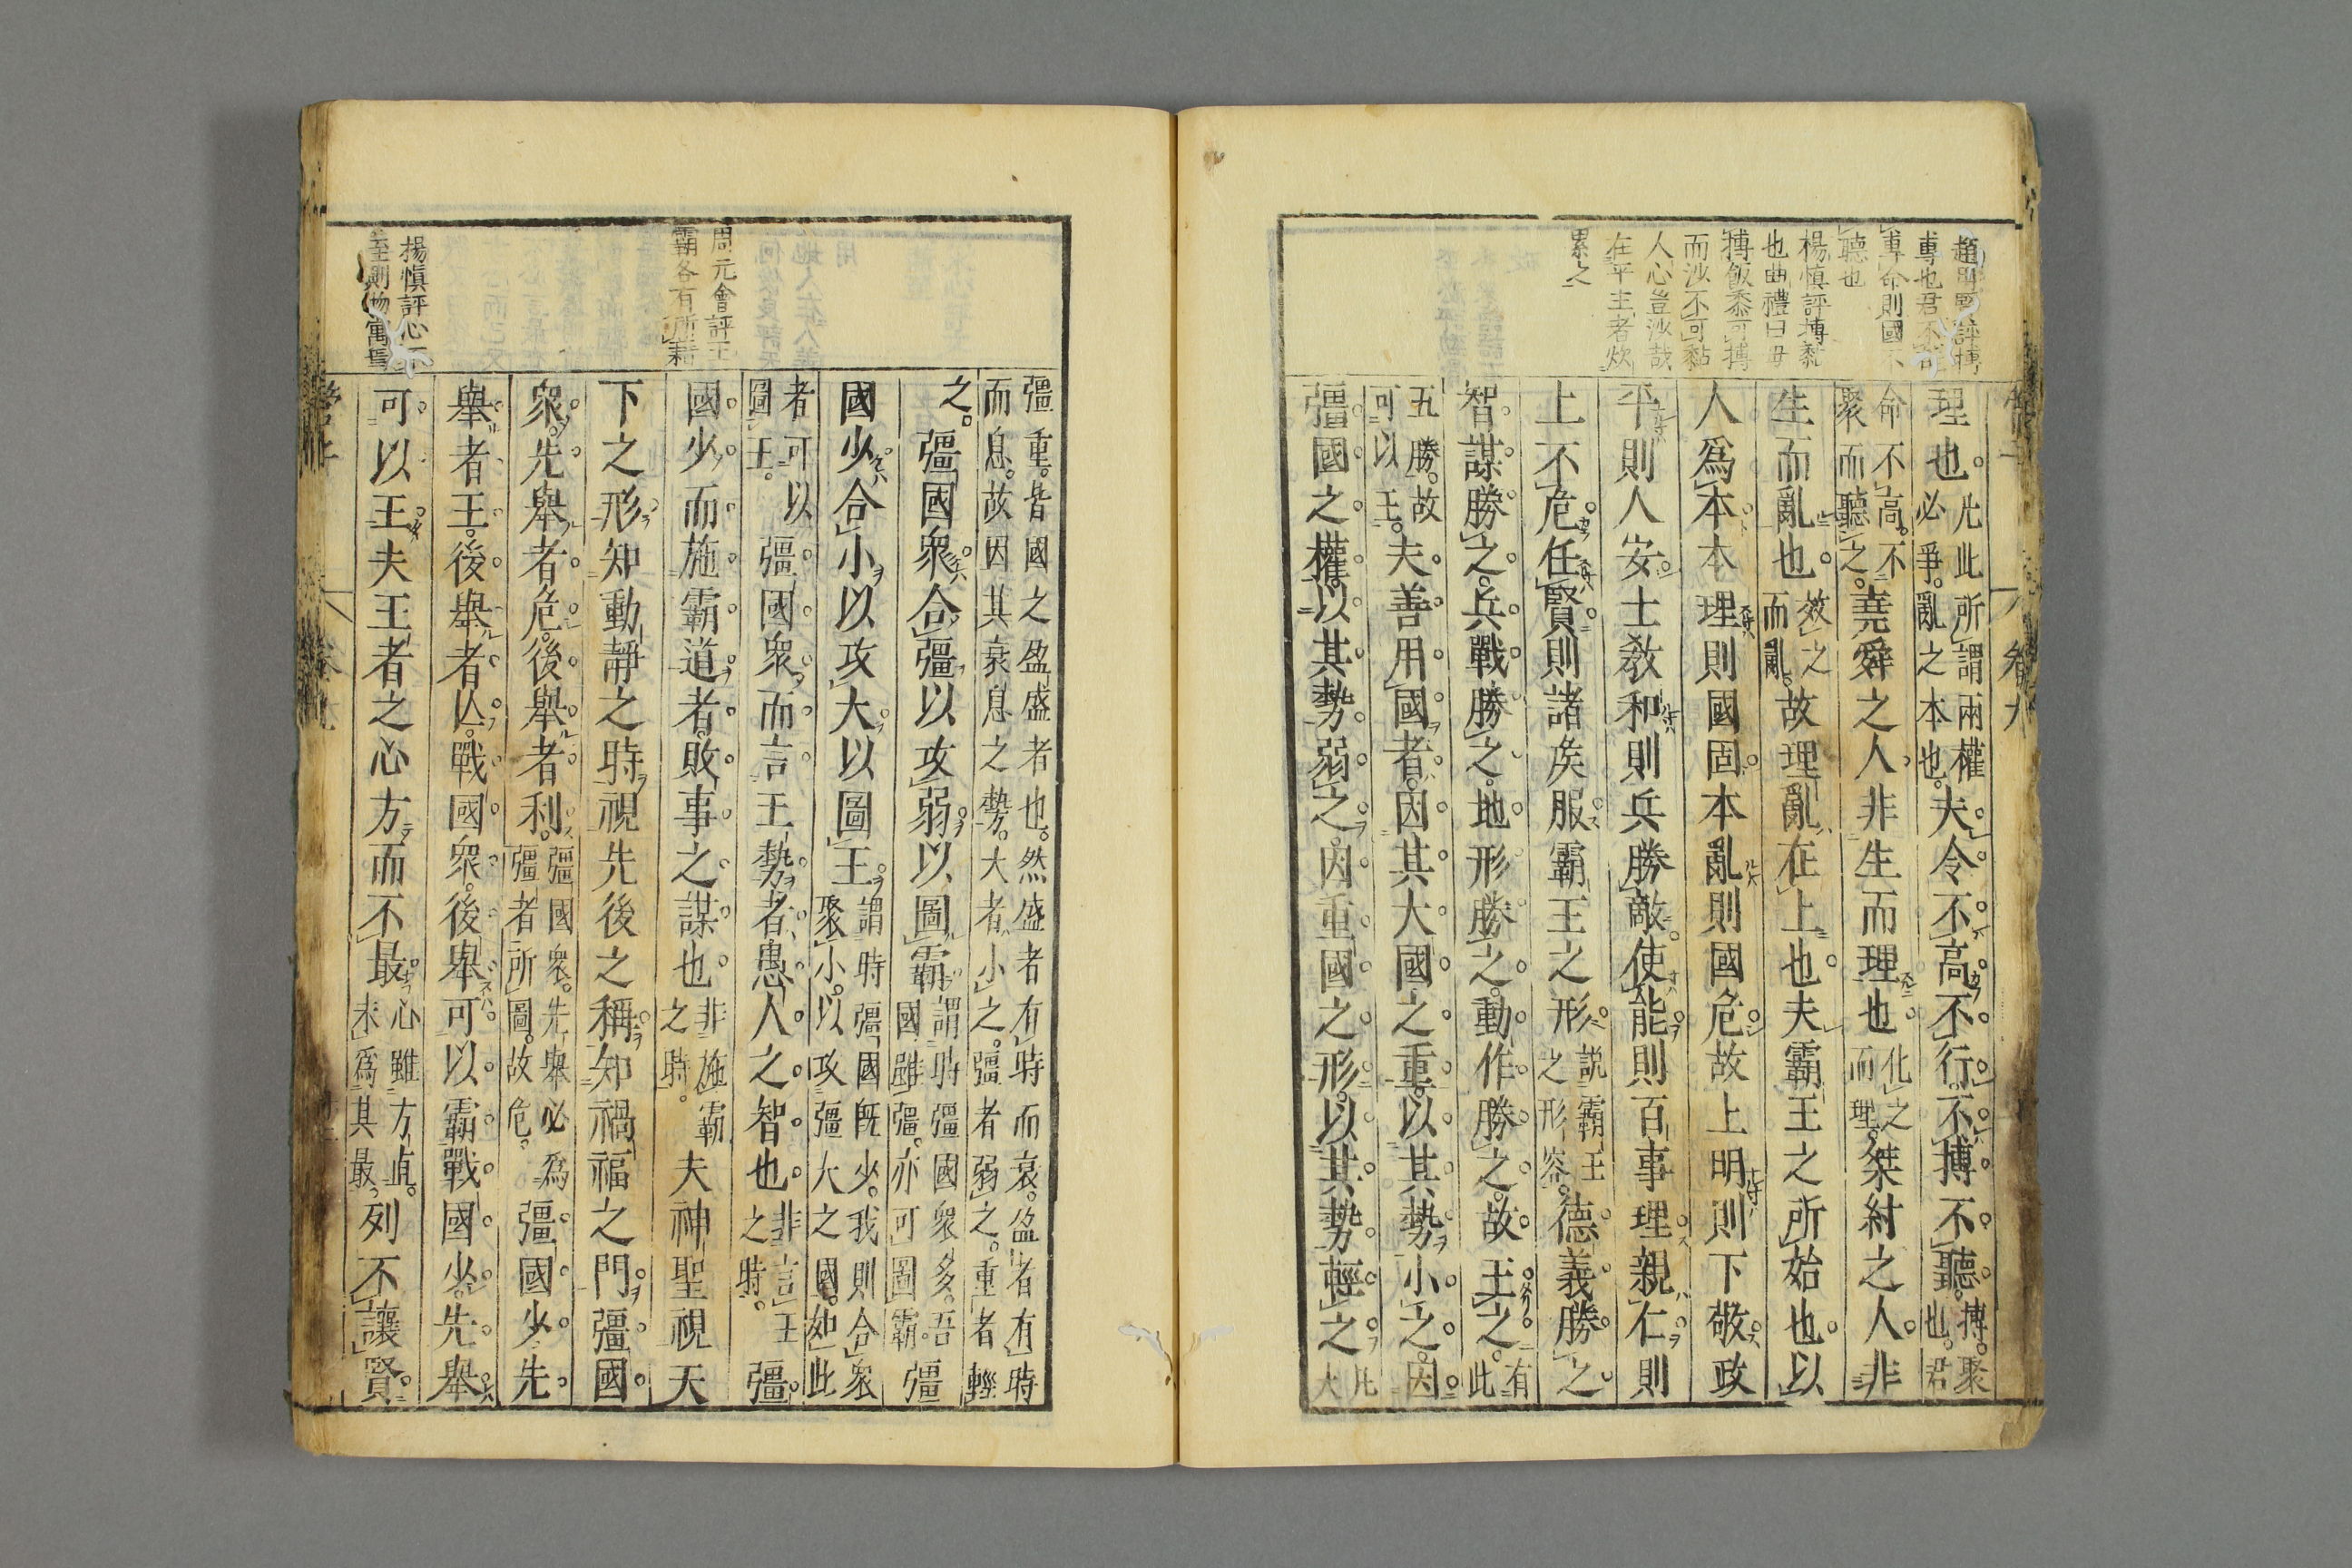 評摶
專也君不
專命則國不
聽也
楊愼評摶黏
也曲禮曰毋
摶飯黍可摶
而沙不可黏
人心豈沙哉
在平主者炊
累之
理也此所謂兩權
必爭亂之本也夫令不高不行不摶不聽摶聚
也君
命不高不
聚而聽之堯舜之人非生而理也化之
而理桀紂之人非
生而亂也效之
而亂故理亂在上也夫霸王之所始也以
人爲本本理則國固本亂則國危故上明則下敬政
平則人安士敎和則兵勝敵使能則百事理親仁則
上不危任賢則諸矦服霸王之形說霸王
之形容德義勝之
智謀勝之兵戰勝之地形勝之動作勝之故王之有
此
五勝故
可以王夫善用國者因其大國之重以其勢小之因
彊國之權以其勢弱之因重國之形以其勢輕之凡
大
周元會評王
霸各有所藉
楊愼評心不
至則物寓焉
彊重皆國之盈盛者也然盛者有時而衰盈者有時
而息故因其衰息之勢大者小之彊者弱之重者輕
之彊國衆合彊以攻弱以圖霸謂時彊國衆多吾
國雖彊亦可圖霸彊
國少合小以攻大以圖王謂時彊國旣少我則合衆
聚小以攻彊大之國如此
者可以
圖王彊國衆而言王勢者愚人之智也非言王
之時彊
國少而施霸道者敗事之謀也非施霸
之時夫神聖視天
下之形知動靜之時視先後之稱知禍福之門彊國
衆先舉者危後舉者利彊國衆先舉必爲
彊者所圖故危彊國少先
舉者王後舉者亾戰國衆後舉可以霸戰國少先舉
可以王夫王者之心方而不最心雖方直
未爲其最列不讓賢